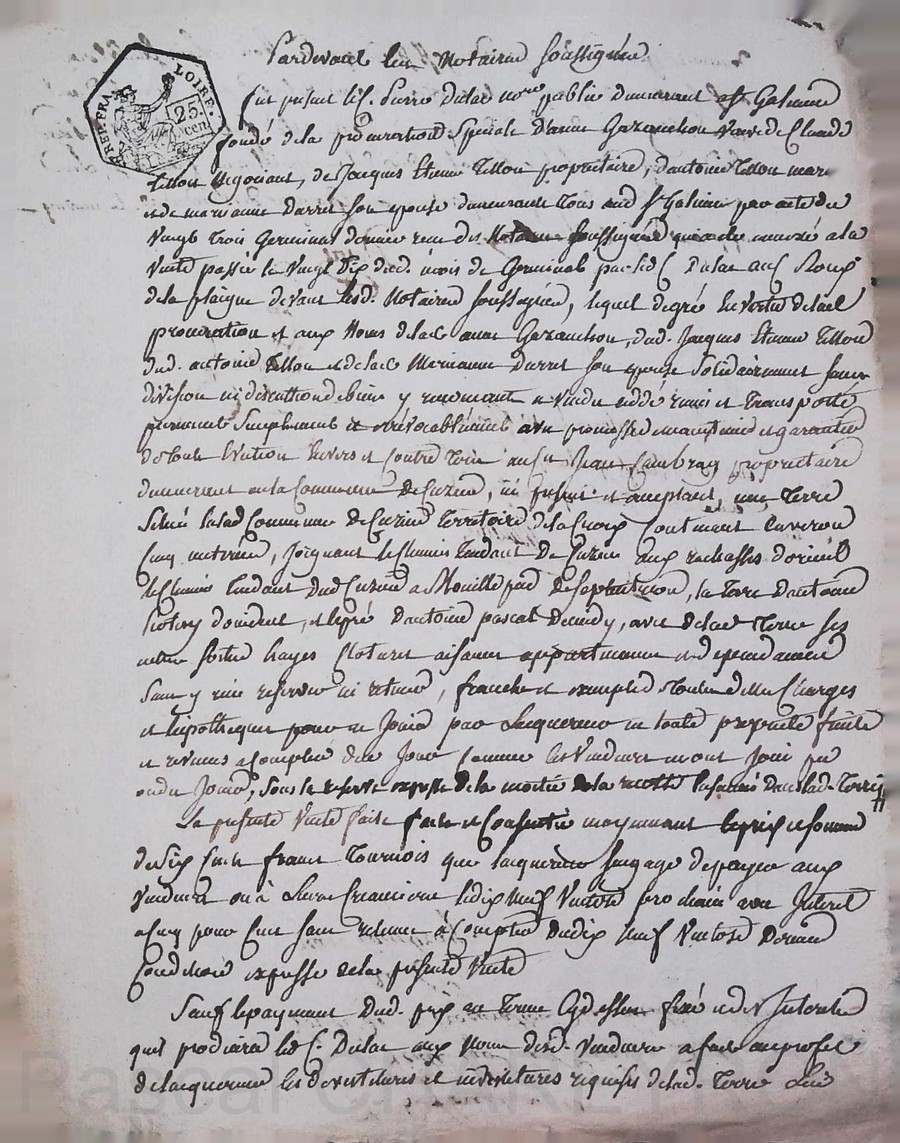 RÉP. FRA.
LOIRE.
25.
cen
Pardevant les Notaires soussignés
fut présent le C. Pierre Dulac no.re public demeurant à St Galmier
fondé de la procuration Spéciale d'anne Gazanchon Veuve de Claude
Tillon Négotiant, de Jacques Etienne Tillon propriétaire, d'antoine Tillon mar
et de marianne Durret son epouse demeurants tous aud St Galmier par acte du
Vingt Trois Germinal dernier recu des Notaires soussignés qui a été annexé a la
Vente passée le Vingt Six dud. mois de Germinal par led C. Dulac au C. Roux
de la plaigne devant lesd. Notaires soussignés, lequel de gré en vertu de lad
procuration et aux Noms de lad anne Gazanchon, dud. Jacques Etienne Tillon
dud. antoine Tillon et de lad Marianne Durret son epouse Solidairement sans
division ni discution de biens y renoncant a Vendu cédé remis et Transporté
purement Simplement et irrévocablement avec promesse de maintenue et garantie
de toute Eviction Envers et Contre Tous au C. Jean propriétaire
demeurant en la Commune de Cuzieu, ici présent et acceptant, une Terre
Située en lad Commune de Cuzieu Territoire de la Croix Contenant Environ
Cinq métérées, Joignant le Chemin Tendant De Cuzieu aux d'orient
le Chemin Tendant dud Cuzieu a de Septentrion, la Terre d'antoine
d'occident, et le pré d'antoine pascal De midy, avec de lad Terre ses
entrées sorties hayes Clotures aisances appartenances et dependances
Sans y rien reserver ni retenir, franche et exempte de toutes dettes Charges
et hipotheques pour en Jouir par Lacquereur en toute propriété fruits
et revenus a Compter de ce Jour Comme les Vendeurs en ont Joui pu
ou du Jouir, Sous la reserve expresse de la moitié de la recolte Pendante dans lad. Terre
La presente Vente faite faite et Consentie moyennant le prix et somme
de Six Cent francs Tournois que lacquereur s'engage de payer aux
Vendeurs ou à Leurs Creanciers le dix neuf Ventose prochain avec Interet
a cinq pour Cent sans retenue à Compter du dix neuf Ventose Dernier
Condition expresse de la presente Vente
Sauf le payement Dud. prix au Terme Cy dessus fixé et des Interets
qu'il produira led C. Dulac aux Noms desd. Vendeurs a fait au profit
de lacquereur les devetitures et investitures requises de lad. Terre